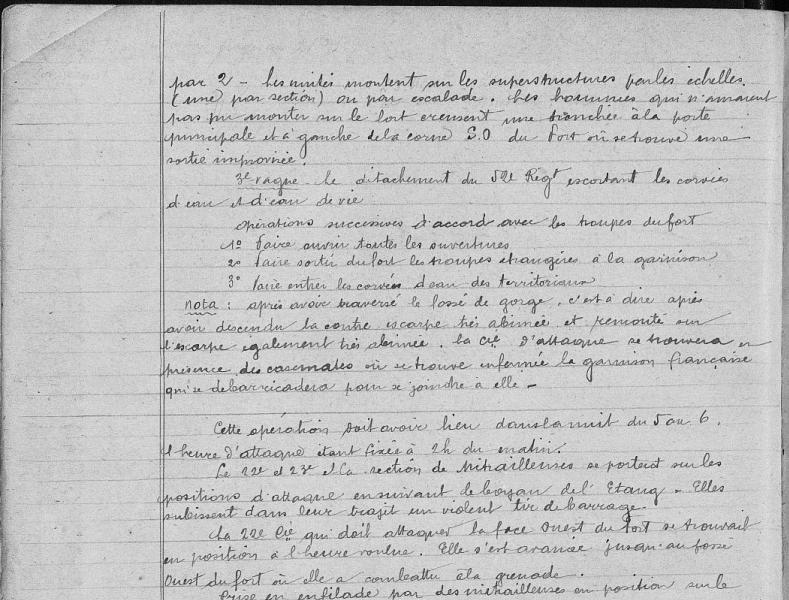 par 2 - Les unités montent sur les superstructures par les échelles
(une par section) ou par escalade. Les hommes qui n'auraient
pas pu monter sur le fort creusent une tranchée à la porte
principale et à gauche de la corne S.O du Fort où se trouve une
sortie improvisée.
3e vague. le détachement du 52e Régt escortant les corvées
d'eau et d'eau de vie
Opérations successives d'accord avec les troupes du fort
1º Faire ouvrir toutes les ouvertures
2º Faire sortir du fort les troupes étrangères à la garnison
3º Faire entrer les corvées d'eau des territoriaux
nota : après avoir traversé le fossé de gorge, c'est à dire après
avoir descendu la contre escarpe très abimée et remonté sur
l'escarpe également très abimée. la Cie d'attaque se trouvera en
présence des casemates où se trouve enfermée la garnison française
qui se debarricadera pour se joindre à elle -
Cette opération doit avoir lieu dans la nuit du 5 au 6.
l'heure d'attaque étant fixée à 2h du matin.
La 22e et 23e et la section de Mitrailleuses se portent sur les
positions d'attaque en suivant le boyau de l'Etang - Elles
subissent dans leur trajet un violent tir de barrage.
La 22e Cie qui doit attaquer la face Ouest du fort se trouvait
en position à l'heure voulue. Elle s'est avancée jusqu'au fossé
Ouest du fort où elle a combattu à la grenade.
Prise en enfilade par des mitrailleuses en position sur le